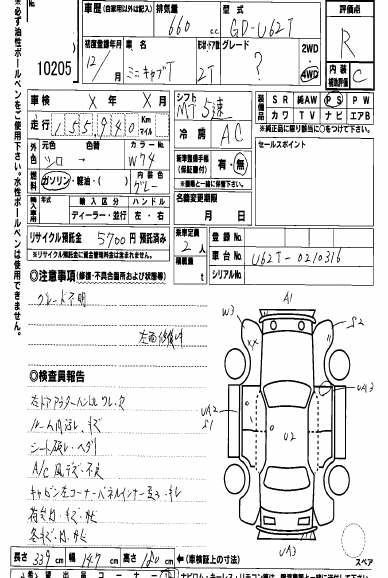 ※必ず油性ボールペンをご使用下さい。水性ボールペンは使用できません。
10205
車歴 (自家用以外は記入) 排気量 型式 評価点
660 cc GD-U62T
R
初度登録年月 車名 形状・ドア数 グレード
12/ ミニキャブT 2T ?
2WD
4WD
内装補助評価 C
車検 X年 X月
シフト MT 5速
装備品 SR 純AW PS PW
カワ TV ナビ エアB
※純正品に限り該当に○をつけて下さい。
走行 155940 Km マイル
冷房 AC
セールスポイント
外色 元色 色替 カラーNo.
シロ → W74
新車整備手帳(保証書付) 有・無
※車価と一緒に保管下さい。
燃料 ガソリン・軽油・( ) 内装色 グレー
輸入車用 年式 輸入区分 ハンドル
ディーラー・並行 左・右
名義変更期限
月 日
リサイクル預託金 5700円 預託済み
※リサイクル預託金に資金管理料金は含まれません。
乗車定員 2人
積載量 t
登録No.
車台No. U62T-0210316
シリアルNo.
◎注意事項 (修復・不具合箇所および状態等)
グレード不明
左面修復け
◎検査員報告
左ドアアウターハンドルワレ、欠
ルーム内汚レ、キズ
シート破レ・ヘタリ
A/C
キャビン左コーナーパネルインナー
荷台内・キズ・サビ
各キズ・凹、サビ
A1
W3
XX
S2
UA2
S1
U2
UA3
UA3
スペア
長さ 339 cm 幅 147 cm 高さ 180 cm ←(車検証上の寸法)